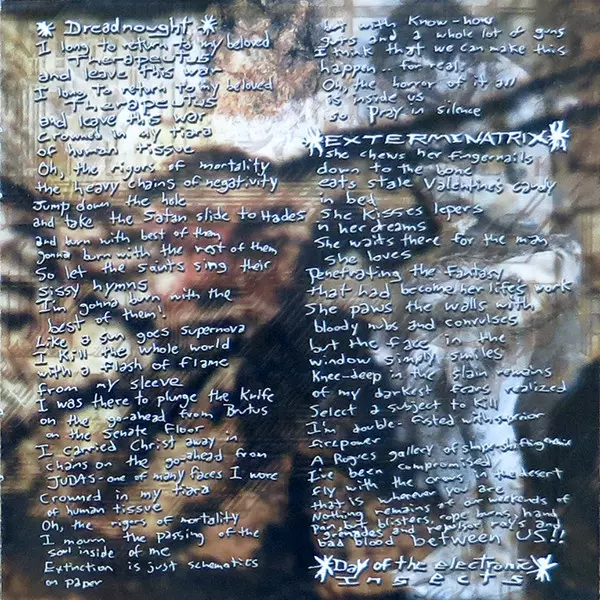 * Dreadnought *
I long to return to my beloved
Therapeutus
and leave this war
I long to return to my beloved
Therapeutus
and leave this war
Crowned in my tiara
of human tissue
Oh, the rigors of mortality
the heavy chains of negativity
Jump down the hole
and take the Satan slide to Hades
and burn with best of them
gonna burn with the rest of them
So let the Saints sing their
Sissy hymns
I'm gonna burn with the
best of them!
Like a sun goes supernova
I kill the whole world
with a flash of flame
from my sleeve
I was there to plunge the Knife
on the go-ahead from Brutus
on the Senate Floor
I carried Christ away in
chains on the go-ahead from
JUDAS - one of many faces I wore
Crowned in my tiara
of human tissue
Oh, the rigors of mortality
I mourn the passing of the
soul inside of me
Extinction is just schematics
on paper
but with Know-how
guts and a whole lot of guns
I think that we can make this
happen.. for real.
Oh, the horror of it all
is inside us
so Pray in silence
* EXTERMINATRIX *
She chews her fingernails
down to the bone
eats stale Valentine's Candy
in bed
She Kisses lepers
n her dreams
She waits there for the man
she loves
Penetrating the Fantasy
that had become her life's work
She paws the walls with
bloody nubs and convulses
but the face in the
window simply smiles
Knee-deep in the slain remains
of my darkest fears realized
Select a subject to Kill
I'm double-fisted with superior
firepower
A Rogues gallery of shapeshifting
I've been compromised
fly with the crows in the desert
that is wherever you are
Nothing remains of our weekends of
pain but blisters, rope burns, hand
grenades and repulsor rays and
bad blood between US!!
* Day of the electronic
Insects *